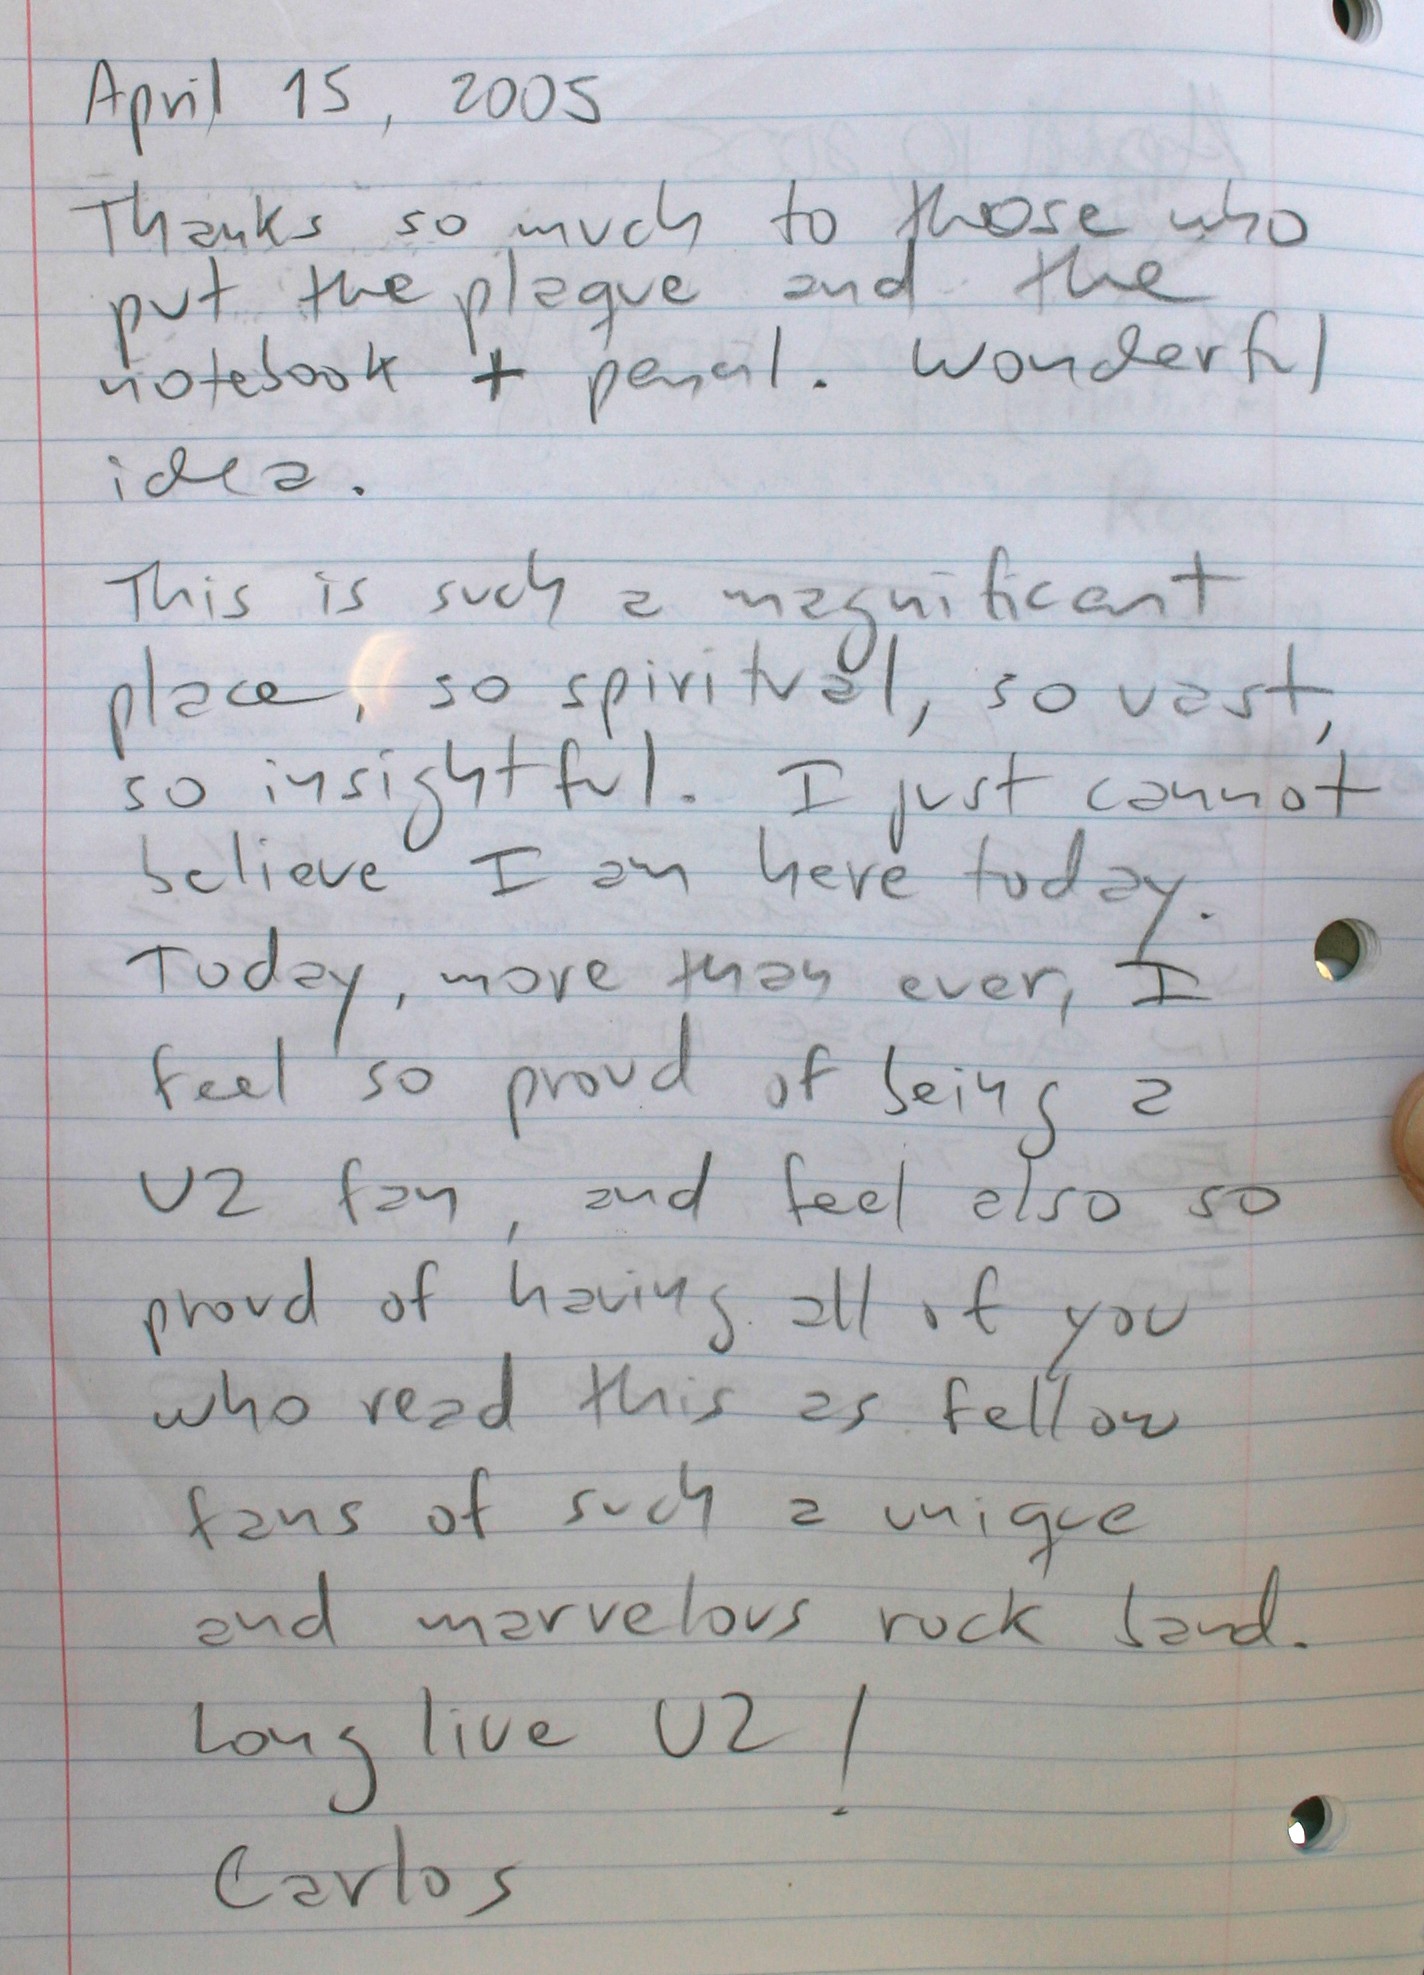 April 15, 2005
Thanks so much to those who
put the plaque and the
notebook + pencil. Wonderful
idea.
This is such a magnificant
place, so spiritual, so vast,
so insightful. I just cannot
believe I am here today.
Today, more than ever, I
feel so proud of being a
U2 fan, and feel also so
proud of having all of you
who read this as fellow
fans of such a unique
and marvelous rock band.
Long live U2!
Carlos